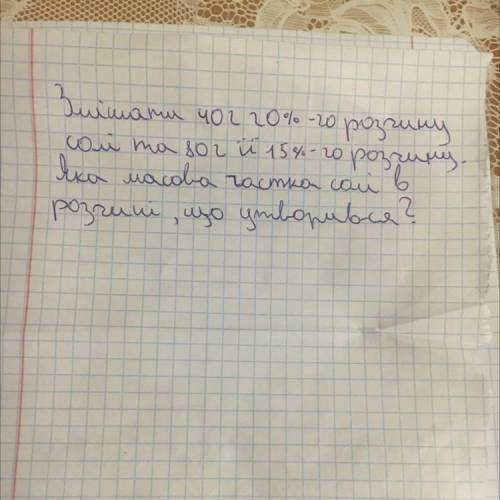 Змішати 40 г 20%-го розчину
солі та 80 г її 15%-го розчину.
Яка масова частка солі в
розчині, що утворився?